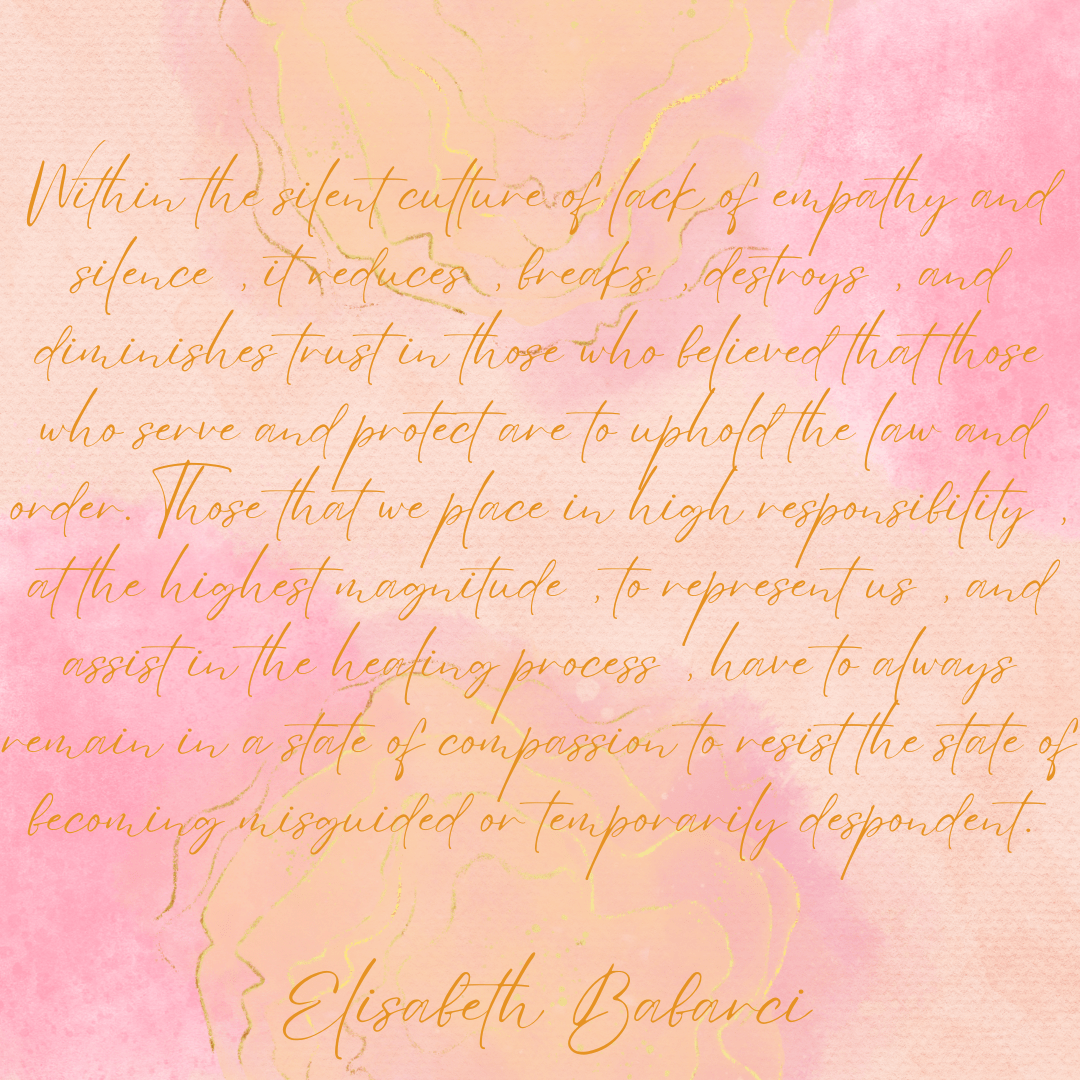 Within the silent culture of lack of empathy and
silence , it reduces , breaks , destroys , and
diminishes trust in those who believed that those
who serve and protect are to uphold the law and
order. Those that we place in high responsibility ,
at the highest magnitude , to represent us , and
assist in the healing process , have to always
remain in a state of compassion to resist the state of
becoming misguided or temporarily despondent.
Elisabeth Babarci